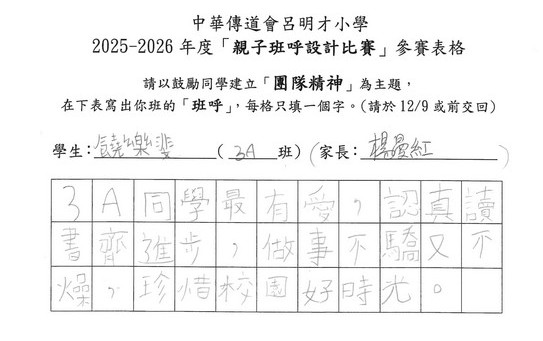 中華傳道會呂明才小學
2025-2026 年度「親子班呼設計比賽」參賽表格
請以鼓勵同學建立「團隊精神」為主題，
在下表寫出你班的「班呼」，每格只填一個字。（請於 12/9 或前交回）
學生：饒樂斐（3A 班）（家長：楊曼紅）
3A同學最有愛，認真讀
書齊進步，做事不驕又不
燥，珍惜校園好時光。